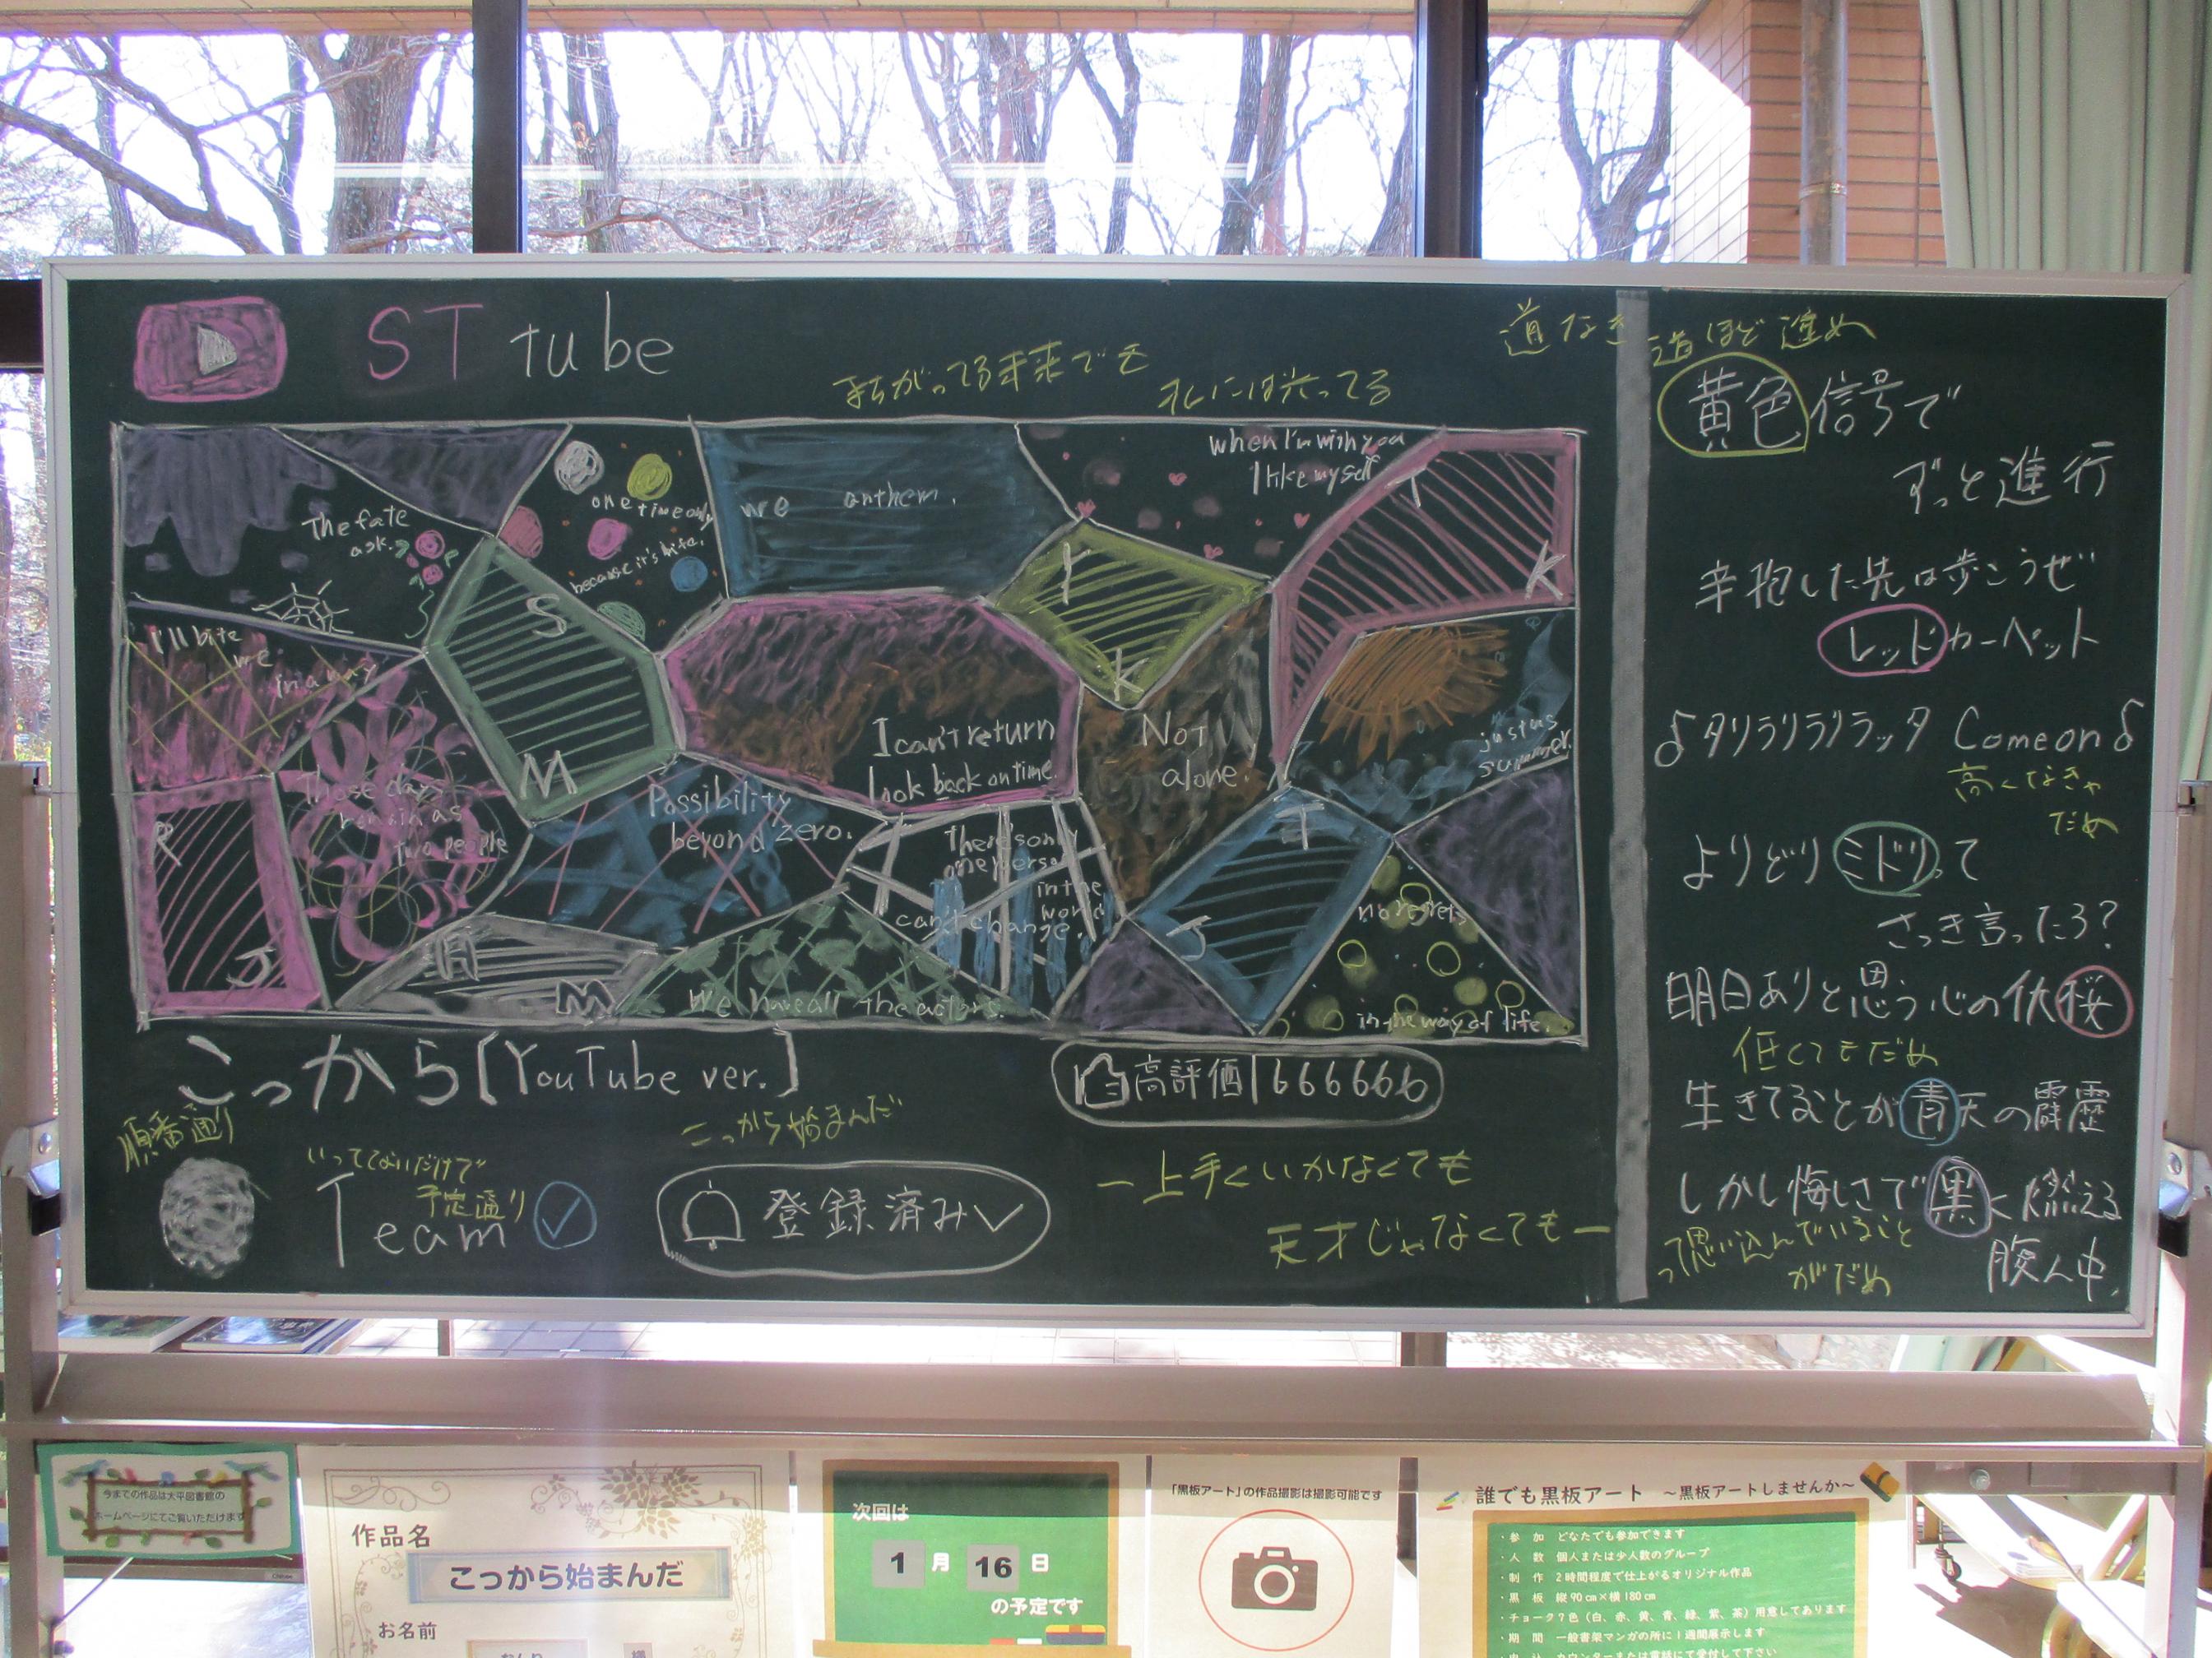 ST tube
まちがってる未来でも
私には光ってる
道なき
道ほど進め
The fate
ask.
one time only
because it's life.
we anthem.
when I'm with you
I like myself
I K
T K
S M
I'll bite
me
in a way
I can't return
look back on time.
Not
alone.
just as
summer.
Those days
remain as
two people
Possibility
beyond zero.
There's only
one person
in the
world
can't change.
R J
H M
T J
We have all the actors.
no regrets
in the way of life.
こっから[YouTube ver.]
高評価|666666
順番通り
いってないだけで
予定通り
Team
こっから始まんだ
登録済み
ー上手くいかなくても
天才じゃなくてもー
黄色信号で
ずっと進行
辛抱した先は歩こうぜ
レッドカーペット
♪タリラリラリラッタ Come on♪
高くなきゃ
だめ
よりどりミドリって
さっき言ったろ?
明日ありと思う心の仇桜
低くてもだめ
生きてることが青天の霹靂
しかし悔しさで黒く燃える
腹ん中
って思い込んでいること
がだめ
今までの作品は大平図書館の
ホームページにてご覧いただけます
作品名
こっから始まんだ
お名前
様
次回は
1月16日
の予定です
「黒板アート」の作品撮影は撮影可能です
誰でも黒板アート ～黒板アートしませんか～
・参 加 どなたでも参加できます
・人 数 個人または少人数のグループ
・制 作 2時間程度で仕上がるオリジナル作品
・黒 板 縦90cm×横180cm
・チョーク7色（白、赤、黄、青、緑、紫、茶）用意してあります
・期 間 一般書架マンガの所に1週間展示します